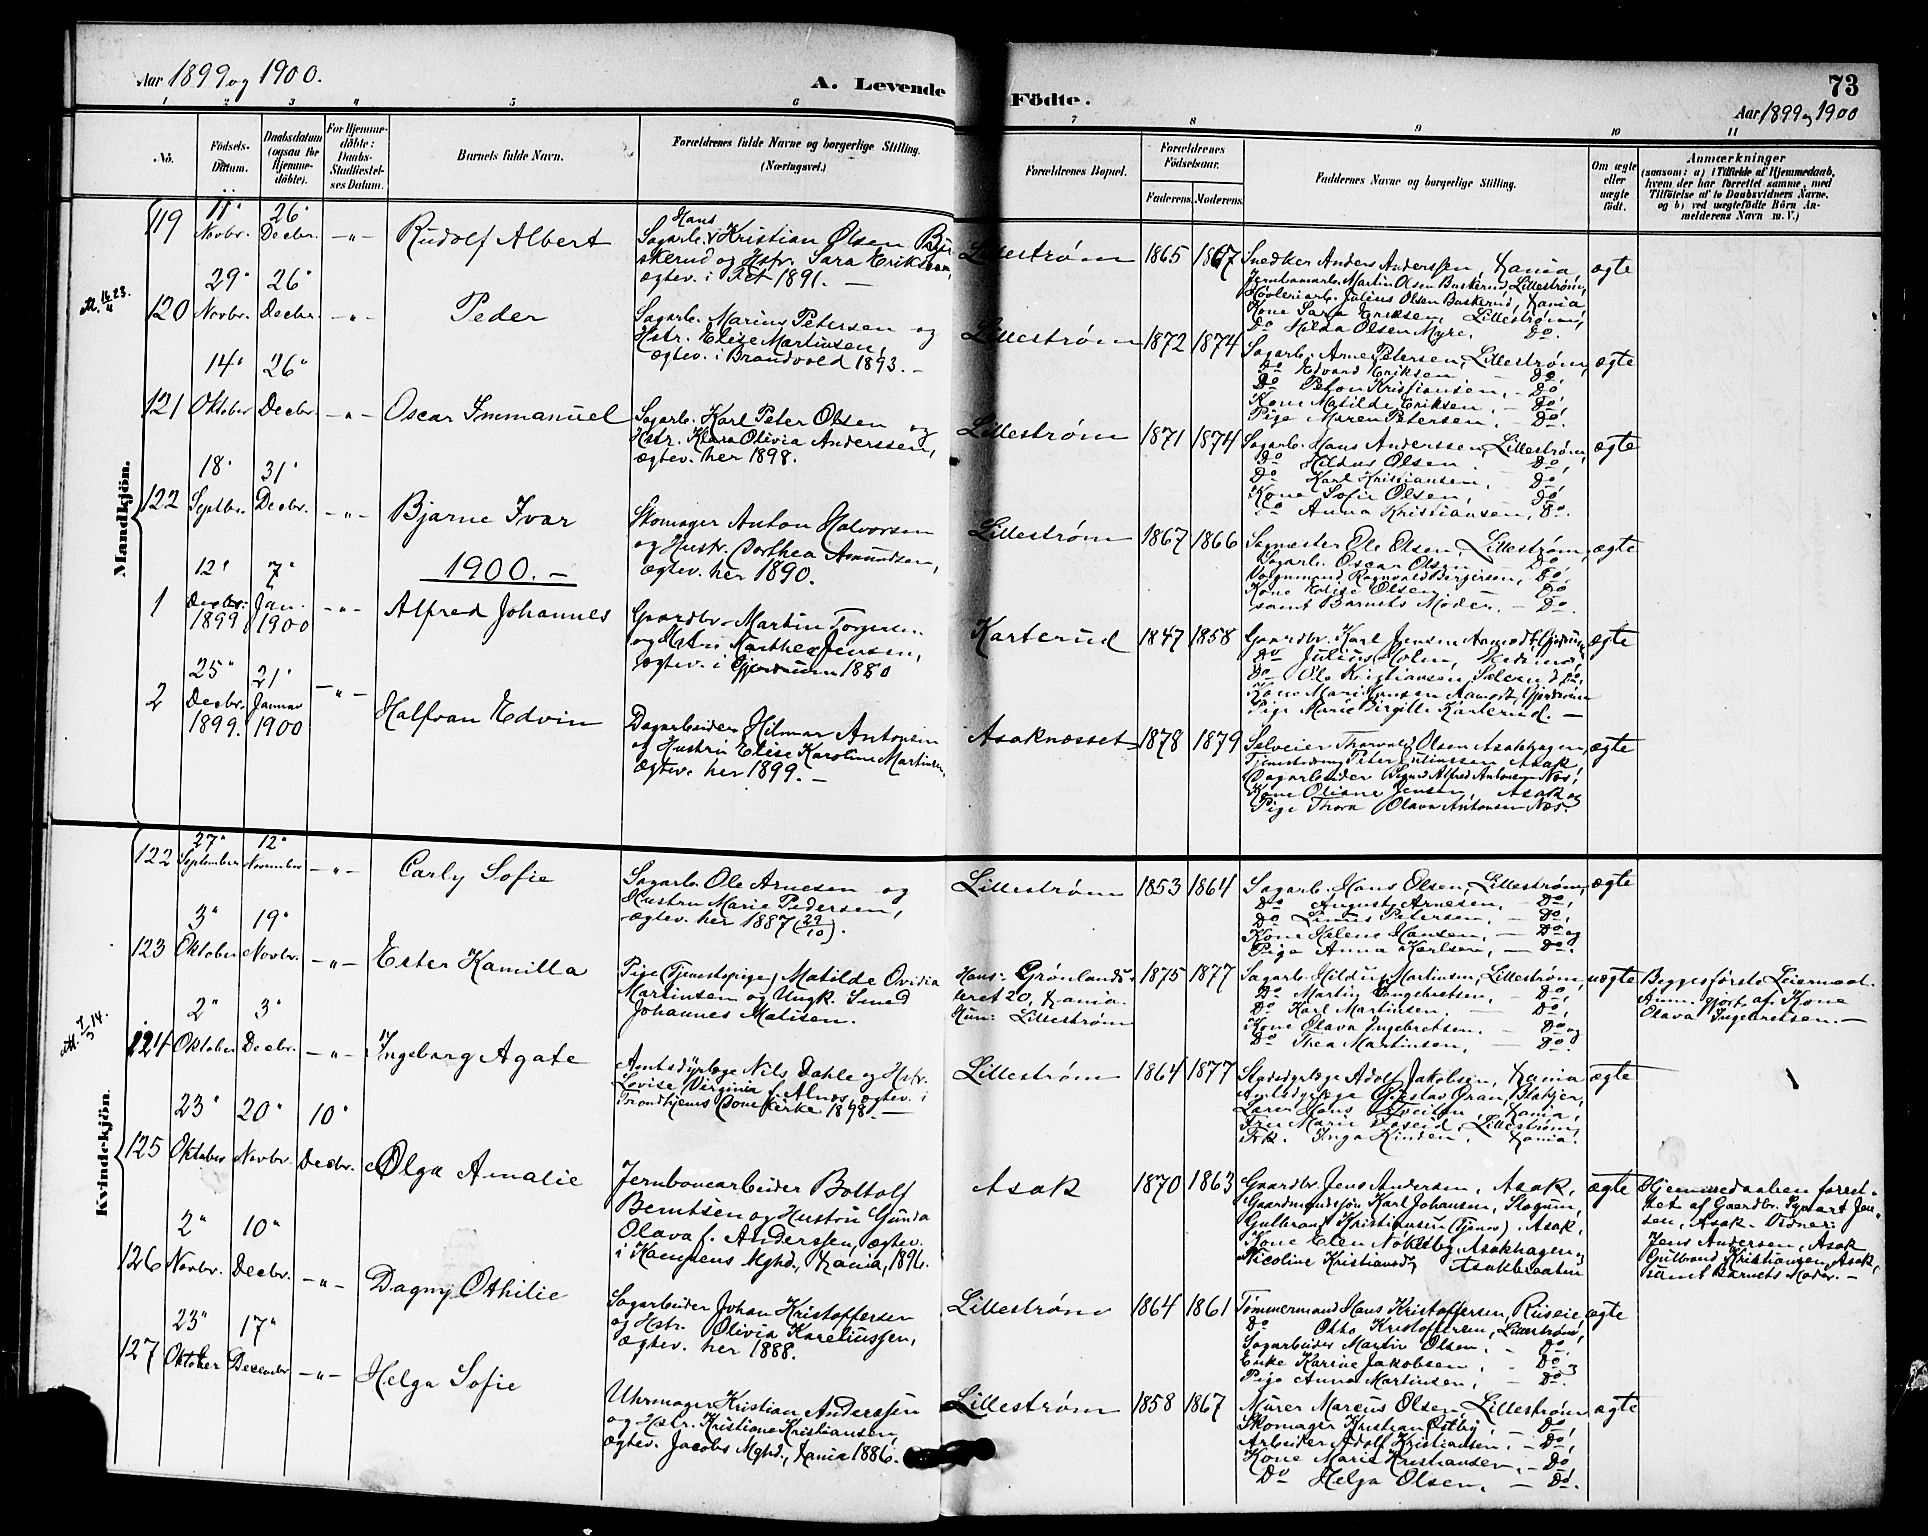 Aar 1899 og 1900.
A. Levende Födte.
73
Aar 1899 og 1900
1 2 3 4 5 6 7 8 9 10 11
No.
Födsels-
Datum.
Daabsdatum
(ogsaa for
Hjemme-
döbte).
For Hjemme-
döbte:
Daabs-
Stadfæstel-
ses Datum.
Barnets fulde Navn.
Forældrenes fulde Navne og borgerlige Stilling.
(Næringsvei.)
Forældrenes Bopæl.
Forældrenes
Födselsaar.
Faderens. Moderens.
Faddernes Navne og borgerlige Stilling.
Om ægte
eller
uægte
født.
Anmærkninger
(saasom: a) i Tilfælde af Hjemmedaab,
hvem der har forrettet samme, med
Tilföielse af to Daabsvidners Navne,
og b) ved uægtefödte Börn An-
melderens Navn m. V.)
Mandkjön.
119 11' Novbr. 26' Decbr. -"- Rudolf Albert
Sagarb. Hans Kristian Olsen Bu-
skerud og Hstr. Sara Eriksen,
ægtev. i Fet 1891. —
Lillestrøm 1865 1867
Snedker Anders Anderssen, Kania,
Jernbanearb. Martin Olsen Buskerud, Lillestrøm,
Høvleriarb. Julius Olsen Buskerud, Kania
Kone Sara Eriksen, Lillestrøm,
Do Hilda Olsen Myre. Do.
ægte
120 29' Novbr. 26' Decbr. -"- Peder
Sagarb. Marius Petersen og
Hstr. Elise Martinsen,
ægtev. i Brandvold 1893. —
Lillestrøm 1872 1874
Sagarb. Arne Petersen, Lillestrøm,
Do Edvard Eriksen — Do,
Do Peton Kristiansen, — Do,
Kone Matilde Eriksen, — Do,
Pige Maren Petersen. — Do.
ægte
121 14' Oktober 26' Decbr. -"- Oscar Immanuel
Sagarb. Karl Peter Olsen og
Hstr. Klara Olivia Anderssen,
ægtev. her 1898.
Lillestrøm 1871 1874
Sagarb. Hans Anderssen, Lillestrøm,
Do Hildus Olsen. Do,
Do Karl Kristiansen, — Do,
Kone Sofie Olsen, — Do,
Do Anna Kristiansen, Do.
ægte
122 18' Septbr. 31' Decbr. -"- Bjarne Ivar
Skomager Anton Halvorsen
og Hustr. Dorthea Amundsen,
ægtev. her 1890.
Lillestrøm 1867 1866
Sagmester Ole Olsen, Lillestrøm,
Sagarb. Oscar Olsen — Do,
Vognmand Ragnvald Bergersen, Do,
Kone Edise Olsen Do
samt Barnets Moder. — Do.
ægte
1900. —
1 12' Decbr. 1899 7' Jan. 1900 -"- Alfred Johannes
Gaardbr. Martin Torgersen
og Hstru Marthe Jensen,
ægtev. i Gjerdrum 1880
Karterud 1847 1858
Gaardbr. Karl Jensen Aamodt, Gjerdrum,
Do Julius Holm, Skedsmo,
Do Ole Kristiansen
Kone Mari Hansen Aamodt, Gjerdrum
Pige Marie Birgitte Karterud. —
ægte
2 25' Decbr. 1899. 21' Januar 1900 -"- Halfvan Edvin
Dagarbeider Hilmar Antonsen
og Hustru Elise Karoline Martinsen,
ægtev. her 1899. —
Asaknæsset 1878 1879
Selveier Thorvald Olsen Asakhagen,
Tjenestedreng Peter Julianssen Asak,
Dagarbeider Sigurd Alfred Antonsen Næs,
Kone Oliane Jensen, Asak og
Pige Thora Olava Antonsen Næs.
ægte
Kvindekjön.
122 27' September 12' November -"- Carly Sofie
Sagarb. Ole Arnesen og
Hustru Marie Pedersen,
ægtev. her 1887 (29/10).
Lillestrøm 1853 1864
Sagarb. Hans Olsen, Lillestrøm,
Do August Arnesen, — Do,
Do Linus Petersen, — Do,
Kone Helene Hansen, — Do og
Pige Anna Karlsen, — Do.
ægte
123 3' Oktober 19' Novbr. -"- Ester Kamilla
Pige (Tjenestepige) Matilde Ovidia
Martinsen og Ungk. Smed
Johannes Matisen.
Hans: Grønlands-
leret 20, Kania.
Hun: Lillestrøm
1875 1877
Sagarb. Hildus Martinsen, Lillestrøm,
Do Martin Engebretsen, — Do,
Do Karl Martinsen. — Do,
Kone Olava Ingebretsen. — Do og
Do Thea Martinsen, — Do.
uægte
Begges første Leiermaal.
Anm. gjort af Kone
Olava Ingebretsen. —
124 2' Oktober 3' Decbr. -"- Ingeborg Agate
Amtsdyrlæge Nils Dahle og Hstr.
Lovise Virginia f. Alnes, ægtev. i
Trondhjems Domkirke 1898. —
Lillestrøm 1864 1877
Stadsdyrlæge Adolf Jakobsen, Kania
Amtsdyrlæge Gustav Gran, Blakjer,
Lærer Hans Tveiten, Kania,
Fru Marie Foseid, Lillestrøm,
Frk. Inga Kinden, Kania.
ægte
125 23' Oktober 20' Novbr. 10' Decbr. Olga Amalie
Jernbanearbeider Bottolf
Berntsen og Hustru Gunda
Olava f. Anderssen, ægtev.
i Kampens Mghd., Kania, 1896.
Asak 1870 1863
Gaardbr. Jens Andersen, Asak,
Gaardmandssøn Karl Johansen, Skogum,
Gulbrand Kristiansen (Tjener) Asak,
Kone Elen Nøkleby, Asakhagen,
Nicoline Kristiansd. Asakbraaten
ægte
Hjemmedaaben forret-
tet af Gaardbr. Syvart Jen-
sen, Asak. Vidner:
Jens Andersen, Asak
Gulbrand Kristiansen Asak,
samt Barnets Moder. —
126 2' Novbr. 10' Decbr. -"- Dagny Othilie
Sagarbeider Johan Kristoffersen
og Hstr. Olivia Kareliussen,
ægtev. her 1888.
Lillestrøm 1864 1861
Tømmermand Hans Kristoffersen, Riiseie
Do Otto Kristoffersen, Lillestrøm,
Sagarbeider Martin Olsen. — Do,
Enke Karine Jakobsen, — Do og
Pige Anna Martinsen, — Do.
ægte
127 23' Oktober 17' December -"- Helga Sofie
Uhrmager Kristian Anderssen
og Hstr. Kristiane Kristiansen,
ægtev. Jacobs Mghd., Kania 1886.
Lillestrøm 1858 1867
Murer Marcus Olsen, Lillestrøm
Skomager Kristian Østby, — Do,
Arbeider Adolf Kristiansen. — Do,
Kone Marie Kristiansen, — Do
Do Helga Olsen, — Do.
ægte